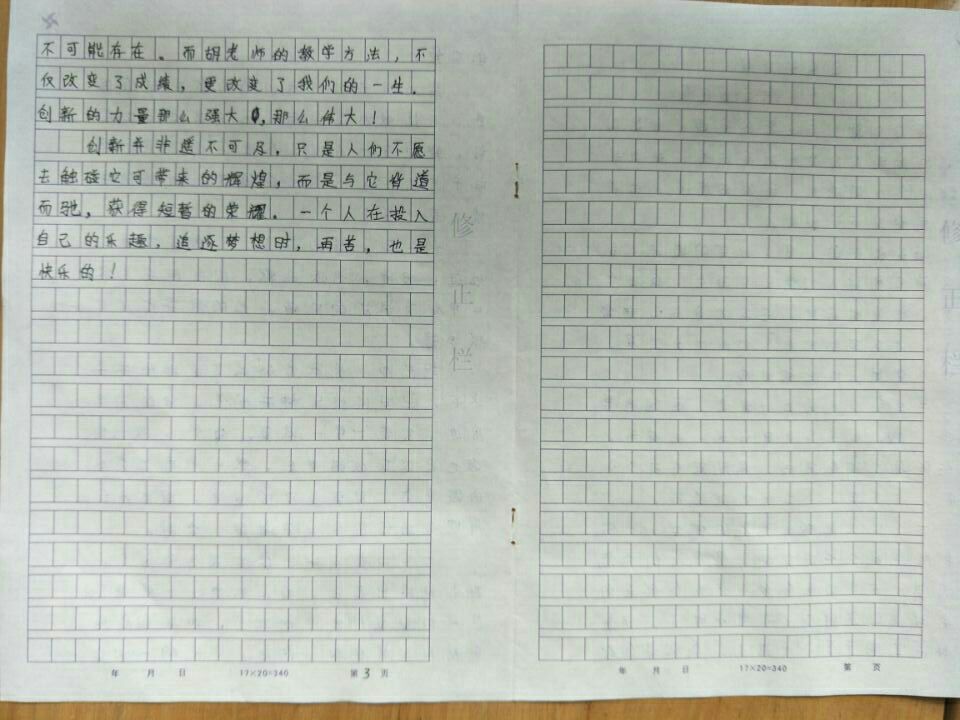 不可能存在。而胡老师的教学方法，不
仅改变了成绩，更改变了我们的一生。
创新的力量那么强大，那么伟大！
创新并非遥不可及，只是人们不愿
去触碰它可带来的辉煌，而是与它背道
而驰，获得短暂的荣耀。一个人在投入
自己的乐趣，追逐梦想时，再苦，也是
快乐的！
修正栏
年 月 日 17×20=340 第 3 页
修正栏
年 月 日 17×20=340 第 页